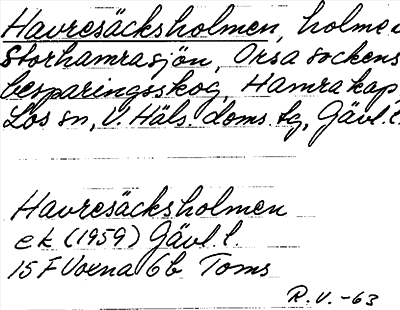 Havresäcksholmen, holme i
Storhamrasjön, Orsa sockens
besparingsskog, Hamra kap
Los sn, V. Häls. doms. tg, Gävl. l.
Havresäcksholmen
ek (1959) Gävl. l.
15 F Voxna 6b Toms
R. V. -63